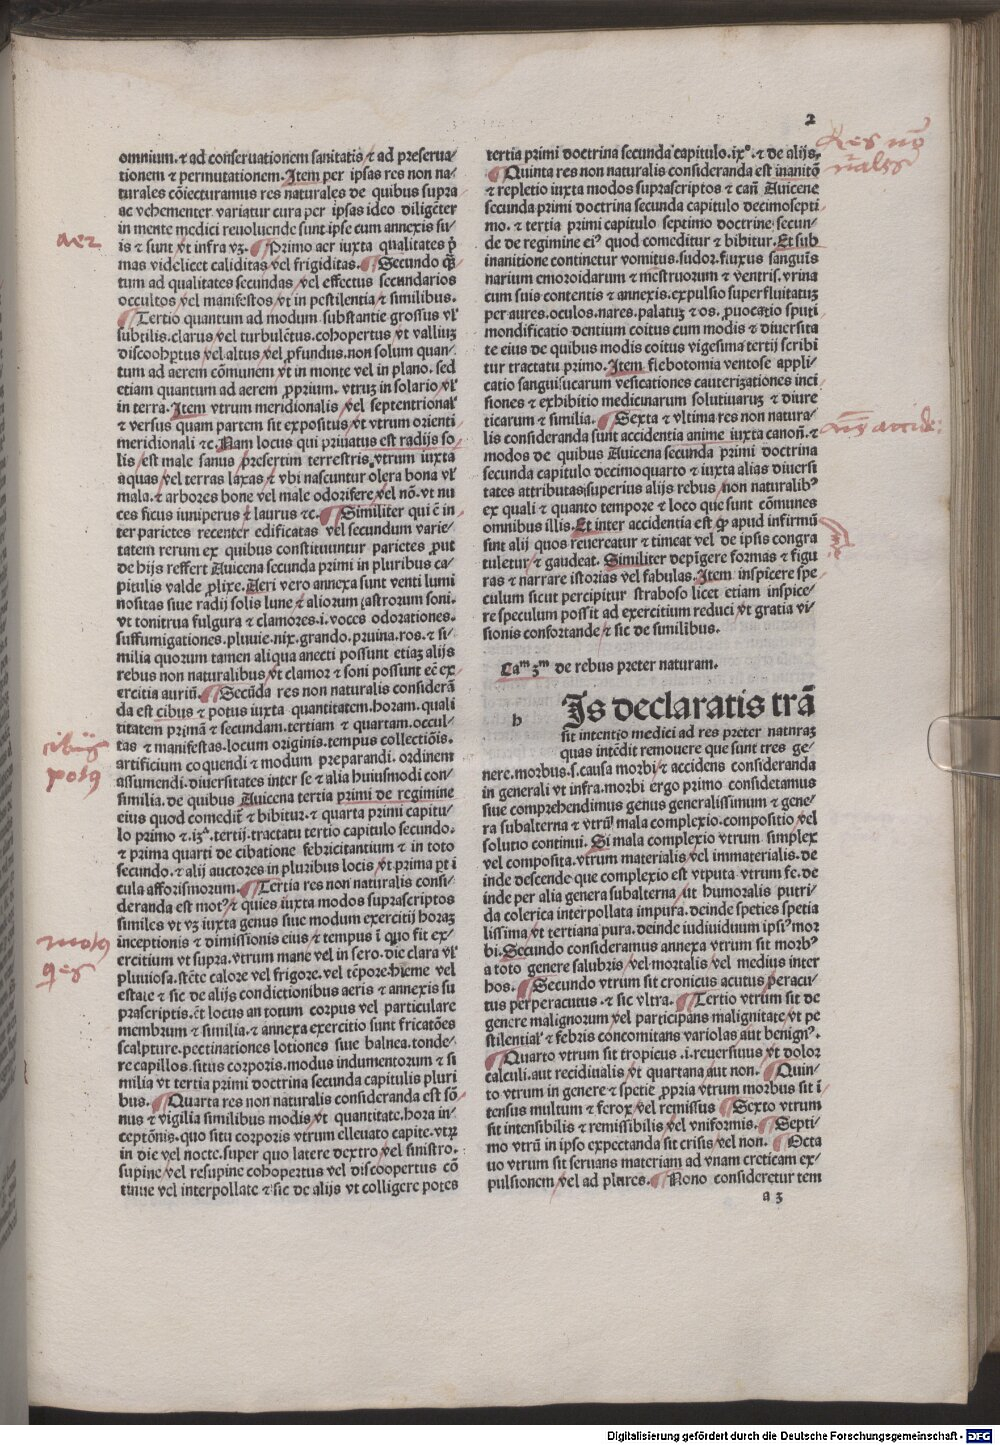 2
Res nō
nāles
omnium. ⁊ ad conseruationem sanitatis ⁊ ad preserua-
tionem ⁊ permutationem. Item per ipsas res non na-
turales cōiecturamus res naturales de quibus supra
ac vehementer variatur cura per ipsas ideo diligēter
in mente medici reuoluende sunt ipse cum annexis su-
aer
is ⁊ sunt vt infra vꝫ. ¶ Primo aer iuxta qualitates p̄
mas videlicet caliditas vel frigiditas. ¶ Secundo qꝫ̄
tum ad qualitates secundas vel effectus secundarios
occultos vel manifestos vt in pestilentia ⁊ similibus.
¶ Tertio quantum ad modum substantie grossus vl'
subtilis. clarus vel turbulētus. cohopertus vt valliuꝫ
discoohꝑtus vel altus vel ꝓfundus. non solum quan-
tum ad aerem cōmunem vt in monte vel in plano. sed
etiam quantum ad aerem ꝓprium. vtruꝫ in solario vl'
in terra. Item vtrum meridionalis vel septentrional'
⁊ versus quam partem sit expositus vt vtrum orienti
meridionali ⁊ c. Nam locus qui priuatus est radijs so-
lis est male sanus presertim terrestris. vtrum iuxta
aquas vel terras laxas ⁊ vbi nascuntur olera bona vl'
mala. ⁊ arbores bone vel male odorifere vel nō. vt nu
ces ficus iuniperus ⁊ laurus ⁊c. ¶ Similiter qui ē in
ter parietes recenter edificatas vel secundum varie-
tatem rerum ex quibus constituuntur parietes ꝓut
de hijs reffert Auicena secunda primi in pluribus ca-
pitulis valde ꝓlixe. Aeri vero annexa sunt venti lumi
nositas siue radij solis lune ⁊ aliorum astrorum soni.
vt tonitrua fulgura ⁊ clamores. i. voces odorationes.
suffumigationes. pluuie. nix. grando. pruina. ros. ⁊ si-
milia quorum tamen aliqua anecti possunt etiaꝫ alijs
rebus non naturalibus vt clamor ⁊ soni possunt eē ex-
ercitia auriū. ¶ Secūda res non naturalis considerā
da est cibus ⁊ potus iuxta quantitatem. horam. quali
titatem primā ⁊ secundam. tertiam ⁊ quartam. occul-
cibus
potus
tas ⁊ manifestas. locum originis. tempus collectiōis.
artificium coquendi ⁊ modum preparandi. ordinem
assumendi. diuersitates inter se ⁊ alia huiusmodi con-
similia. de quibus Auicena tertia primi de regimine
eius quod comedit̄ ⁊ bibitur. ⁊ quarta primi capitu-
lo primo ⁊ .iꝫª. tertij. tractatu tertio capitulo secundo.
⁊ prima quarti de cibatione febricitantium ⁊ in toto
secundo. ⁊ alij auctores in pluribus locis vt prima ꝑt i
cula afforismorum. ¶ Tertia res non naturalis consi-
deranda est motꝰ ⁊ quies iuxta modos suprascriptos
motus
q̄es
similes vt vꝫ iuxta genus siue modum exercitij horaꝫ
inceptionis ⁊ dimissionis eius ⁊ tempus ī quo fit ex-
ercitium vt supra. vtrum mane vel in sero. die clara vl'
pluuiosa. stēte calore vel frigore. vel tēpore. hieme vel
estate ⁊ sic de alijs condictionibus aeris ⁊ annexis su
prascriptis. ēt locus an totum corpus vel particulare
membrum ⁊ similia. ⁊ annexa exercitio sunt fricatōes
scalpture. pectinationes lotiones siue balnea. tonde-
re capillos. situs corporis. modus indumentorum ⁊ si
milia vt tertia primi doctrina secunda capitulis pluri
bus. ¶ Quarta res non naturalis consideranda est sō-
nus ⁊ vigilia similibus modis vt quantitate. hora in-
ceptōnis. quo situ corporis vtrum elleuato capite. vtꝝ
in die vel nocte. super quo latere dextro vel sinistro.
supine vel resupine cohopertus vel discoopertus cō
tinue vel interpollate ⁊ sic de alijs vt colligere potes
tertia primi doctrina secunda capitulo. ix°. ⁊ de alijs.
¶ Quinta res non naturalis consideranda est inanitō
⁊ repletio iuxta modos suprascriptos ⁊ cañ Auicene
secunda primi doctrina secunda capitulo decimosepti-
mo. ⁊ tertia primi capitulo septimo doctrine secun-
de de regimine eiꝰ quod comeditur ⁊ bibitur. Et sub
inanitione continetur vomitus. sudor. fluxus sanguīs
narium emoroidarum ⁊ mestruorum ⁊ ventris. vrina
cum suis contentis ⁊ annexis. expulsio superfluitatuꝫ
per aures. oculos. nares. palatuꝫ ⁊ os. ꝓuocatio sputi
mondificatio dentium coitus cum modis ⁊ diuersita
te eius de quibus modis coitus vigesima tertij scribi
tur tractatu primo. Item flebotomia ventose appli-
catio sanguisucarum vesicationes cauterizationes inci
siones ⁊ exhibitio medicinarum solutiuaruꝫ ⁊ diure
ticarum ⁊ similia. ¶ Sexta ⁊ vltima res non natura-
lis consideranda sunt accidentia anime iuxta canoñ. ⁊
modos de quibus Auicena secunda primi doctrina
secunda capitulo decimoquarto ⁊ iuxta alias diuersi
tates attributas superius alijs rebus non naturalibꝰ
ex quali ⁊ quanto tempore ⁊ loco que sunt cōmunes
omnibus illis. Et inter accidentia est ꝙ apud infirmū
sint alij quos reuereatur ⁊ timeat vel de ipsis congra
tuletur ⁊ gaudeat. Similiter depigere formas ⁊ figu
ras ⁊ narrare istorias vel fabulas. Item inspicere spe-
culum sicut percipitur straboso licet etiam inspice-
re speculum possit ad exercitium reduci vt gratia vi-
sionis confortande ⁊ sic de similibus.
Caᵐ ꝫᵐ de rebus preter naturam.
b
Is declaratis trā
sit intentio medici ad res preter naturaꝫ
quas intēdit remouere que sunt tres ge-
nere. morbus. s. causa morbi ⁊ accidens consideranda
in generali vt infra. morbi ergo primo considetamus
siue comprehendimus genus generalissimum ⁊ gene-
ra subalterna ⁊ vtrū mala complexio. compositio vel
solutio continui. Si mala complexio vtrum simplex
vel composita. vtrum materialis vel immaterialis. de
inde descende que complexio est vtputa vtrum fe. de
inde per alia genera subalterna ut humoralis putri-
da colerica interpollata impura. deinde speties spetia
lissima vt tertiana pura. deinde indiuiduum ipsiꝰ mor
bi. Secundo consideramus annexa vtrum sit morbꝰ
a toto genere salubris vel mortalis vel medius inter
hos. ¶ Secundo vtrum sit cronicus acutus peracu-
tus perperacutus. ⁊ sic vltra. ¶ Tertio vtrum sit de
genere malignorum vel participans malignitate vt pe
stilential' ⁊ febris concomitans variolas aut benignꝰ.
¶ Quarto vtrum sit tropicus .i. reuersiuus vt dolor
calculi. aut recidiualis vt quartana aut non. ¶ Quin-
to vtrum in genere ⁊ spetie ꝓpria vtrum morbus sit ī
tensus multum ⁊ ferox vel remissus ¶ Sexto vtrum
sit intensibilis ⁊ remissibilis vel vniformis. ¶ Septi-
mo vtrū in ipso expectanda sit crisis vel non. ¶ Octa
uo vtrum sit seruans materiam ad vnam creticam ex-
pulsionem vel ad plures. ¶ Nono consideretur tem
a 3
Digitalisierung gefördert durch die Deutsche Forschungsgemeinschaft - DFG